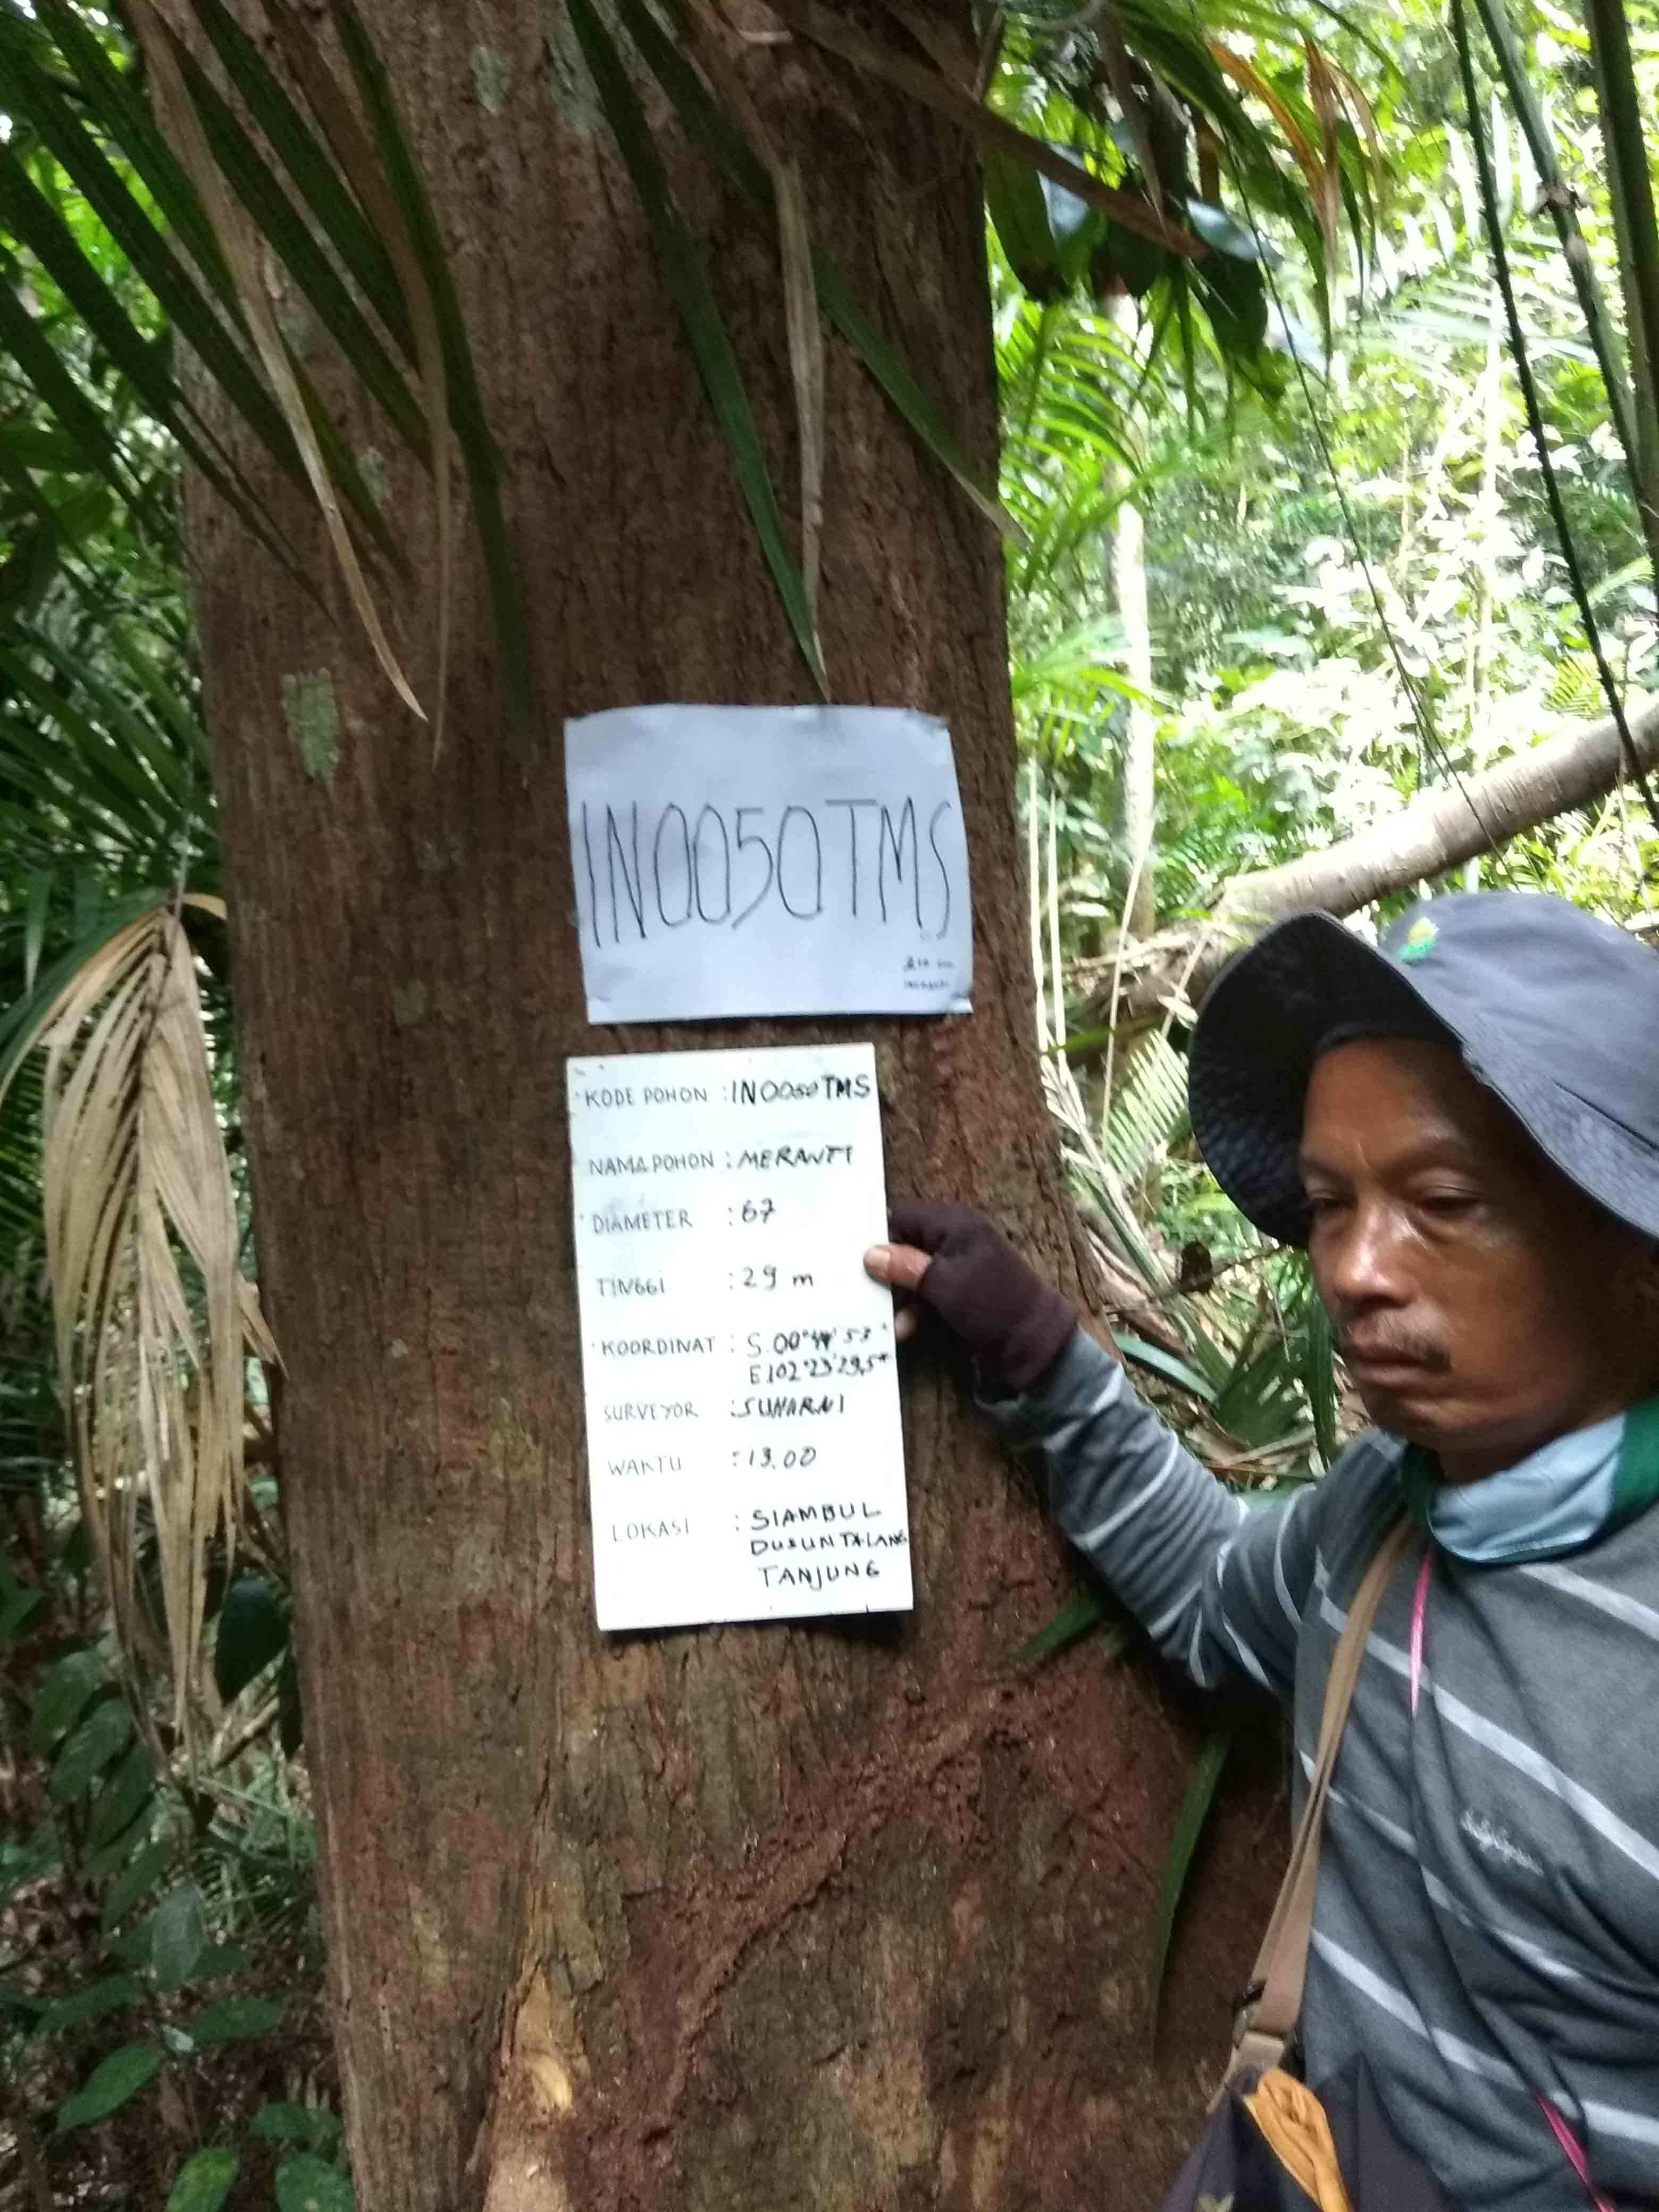 IN0050TMS
KODE POHON : IN0050TMS
NAMA POHON : MERANTI
DIAMETER : 67
TINGGI : 29 m
KOORDINAT : S.00°44'53"
E102°23'29,5"
SURVEYOR : SUHARNI
WAKTU : 13.00
LOKASI : SIAMBUL
DUSUN TALANG
TANJUNG